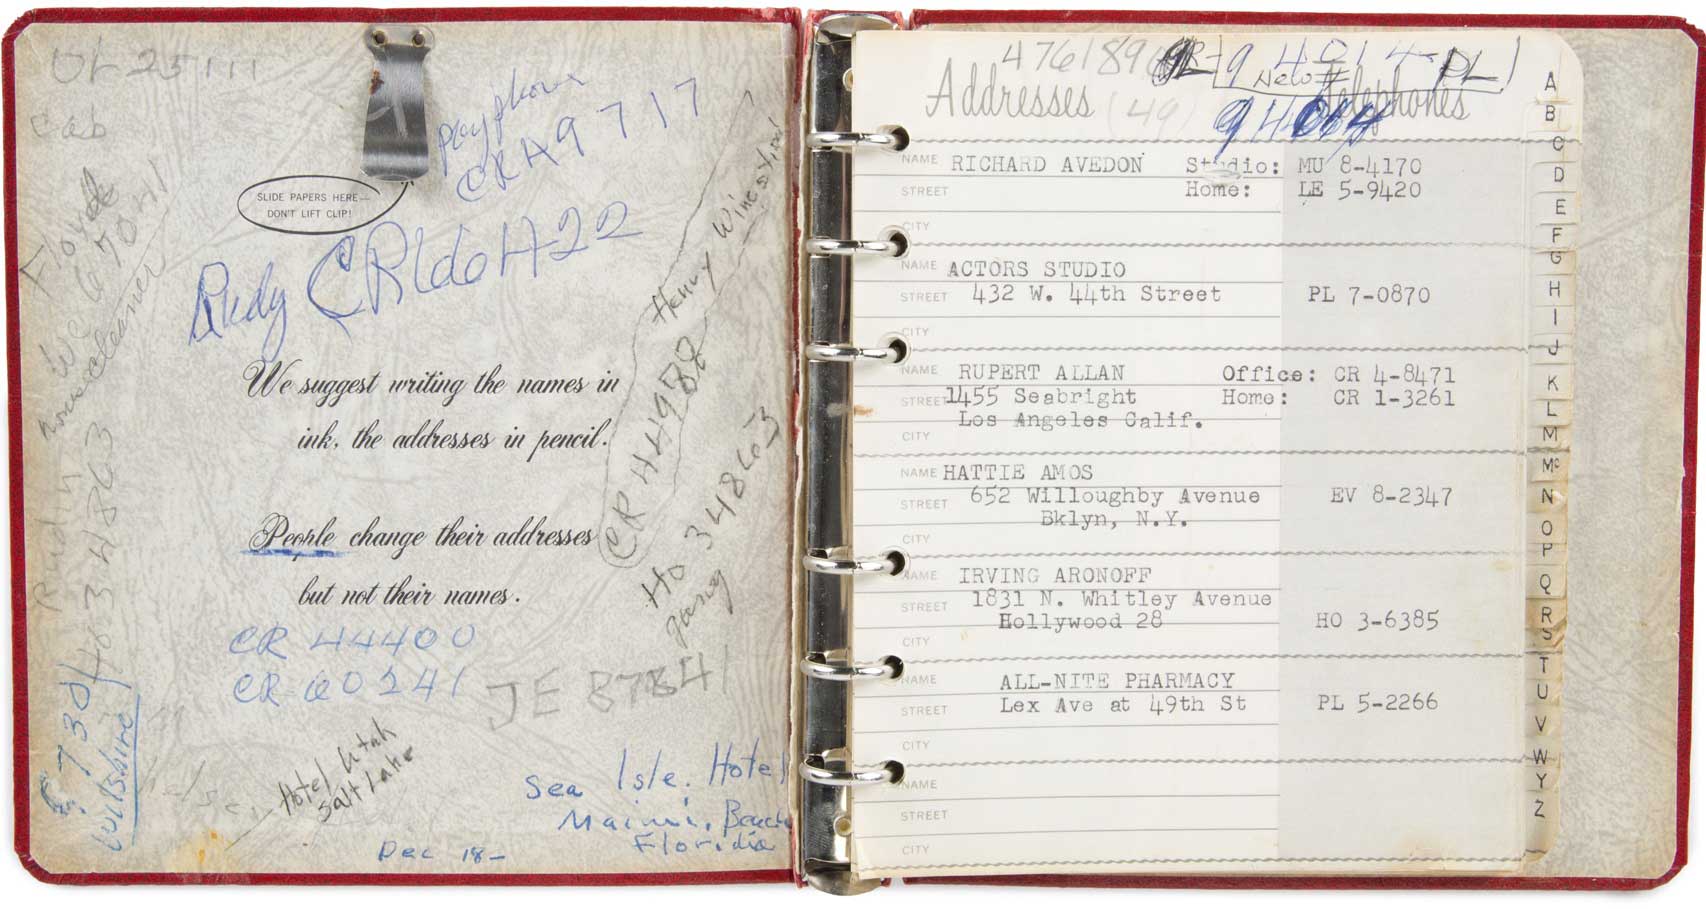 OL 25111
Cab
playphone
CR H9717
SLIDE PAPERS HERE—
DON'T LIFT CLIP!
Rudy CR
Henry Winestine
CR H4988
We suggest writing the names in
ink, the addresses in pencil.
HO 34863
People change their addresses
but not their names.
CR 44400
CR 60241
JE
730
Wilshire
Hotel Utah
Salt Lake
Sea Isle. Hotel
Maimi. Beach
Florida
Dec 18—
4761896
9 4014- PL
New #
Addresses (49) Telephones
94014
NAME RICHARD AVEDON Studio: MU 8-4170
STREET Home: LE 5-9420
CITY
NAME ACTORS STUDIO
STREET 432 W. 44th Street PL 7-0870
CITY
NAME RUPERT ALLAN Office: CR 4-8471
STREET 1455 Seabright Home: CR 1-3261
Los Angeles Calif.
CITY
NAME HATTIE AMOS
STREET 652 Willoughby Avenue EV 8-2347
Bklyn, N.Y.
CITY
NAME IRVING ARONOFF
STREET 1831 N. Whitley Avenue
Hollywood 28 HO 3-6385
CITY
NAME ALL-NITE PHARMACY
STREET Lex Ave at 49th St PL 5-2266
CITY
NAME
STREET
CITY
A
B
C
D
E
F
G
H
I
J
K
L
M
Mc
N
O
P
Q
R
S
T
U
V
W
Y
Z